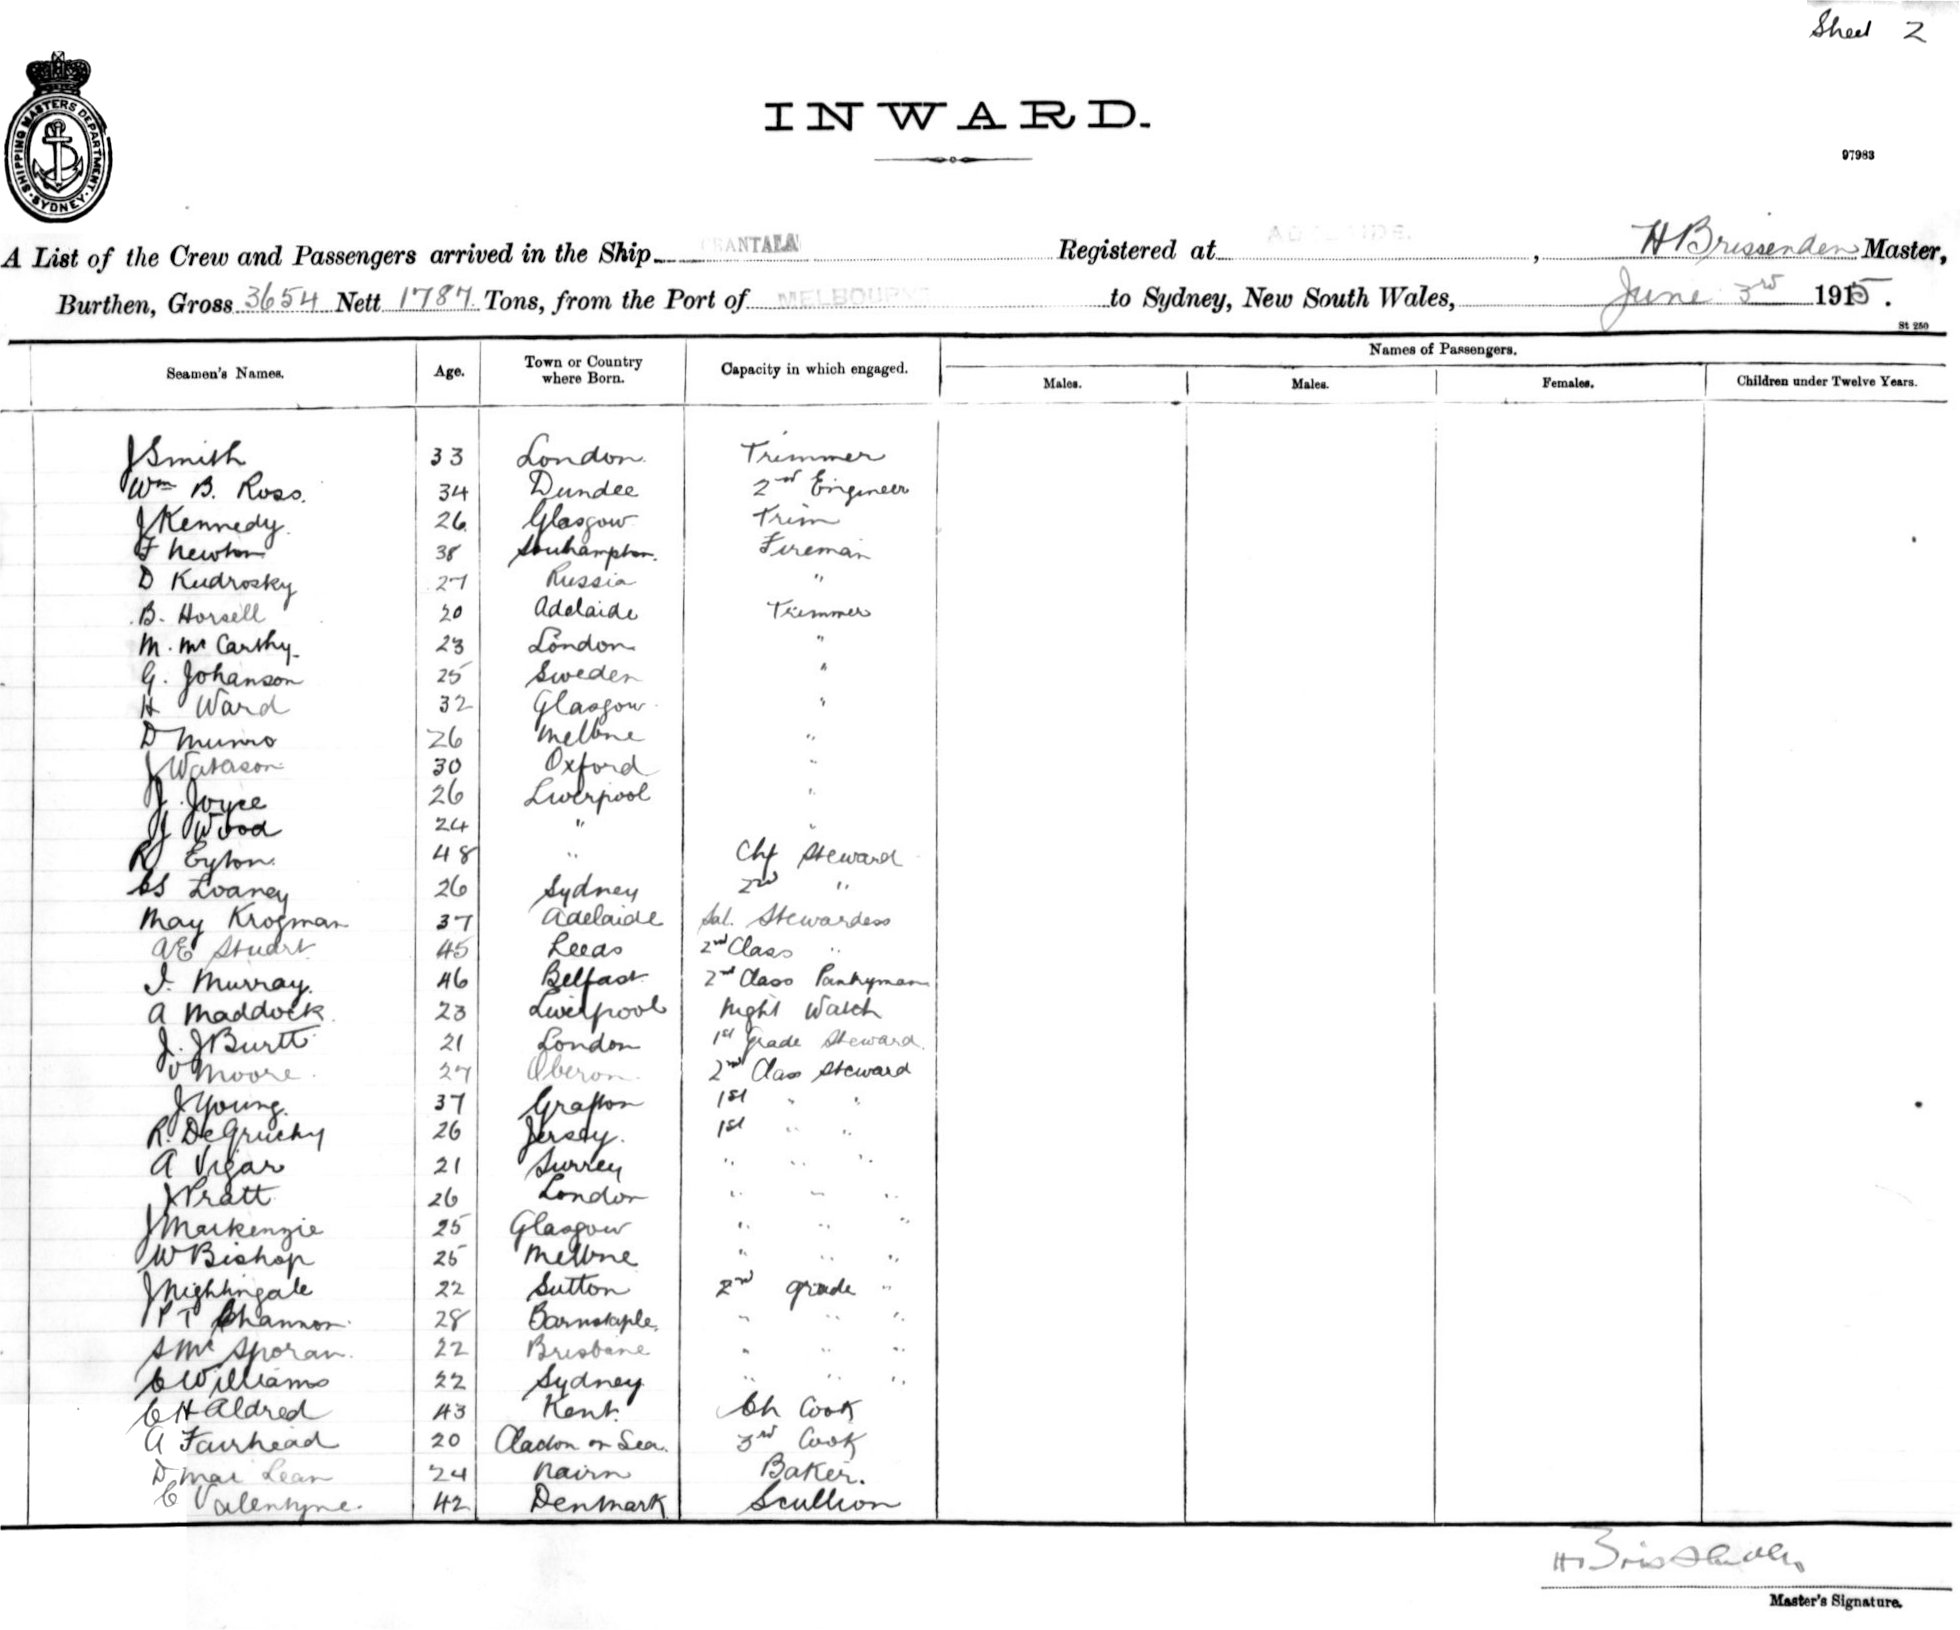 Sheet 2
SHIPPING MASTERS DEPARTMENT. SYDNEY
INWARD.
97983
A List of the Crew and Passengers arrived in the Ship GRANTALA Registered at ADELAIDE. , H Brissenden Master,
Burthen, Gross 3654 Nett 1787 Tons, from the Port of MELBOURNE to Sydney, New South Wales, June 3rd 1915.
St 250
Seamen's Names. Age. Town or Country where Born. Capacity in which engaged. Names of Passengers.
Males. Males. Females. Children under Twelve Years.
J Smith 33 London Trimmer
Wm B. Ross. 34 Dundee 2nd Engineer
J Kennedy. 26 Glasgow Trim
F Newton 38 Souhampton. Fireman
D Kudrosky 27 Russia "
B. Horsell 20 Adelaide Trimmer
M. Mc Carthy 23 London "
G. Johanson 25 Sweden "
H Ward 32 Glasgow "
D Munro 26 Melbne "
J Watason 30 Oxford "
J. Joyce 26 Liverpool "
J Wood 24 " "
R Eyton. 48 " Chf Steward
CS Loaney 26 Sydney 2nd "
May Krogman 37 Adelaide Sal. Stewardess
AE Stuart 45 Leeds 2nd Class "
I. Murray. 46 Belfast 2nd Class Pantryman
A Maddock 23 Liverpool Night Watch
J. J Burtt 21 London 1st Grade Steward.
V Moore. 27 Oberon. 2nd Class Steward
J Young. 37 Grafton 1st " "
R. DeGruchy 26 Jersey. 1st " "
A Vigar 21 Surrey " " "
J Pratt 26 London " " "
J Mackenzie 25 Glasgow " " "
W Bishop 25 Melbne " " "
J Nightingale 22 Sutton 2nd grade "
P T Channon. 28 Barnstaple. " " "
S Mc Sporan. 22 Brisbane " " "
C Williams 22 Sydney " " "
C H Aldred 43 Kent. Ch Cook
A Fairhead 20 Clacton on Sea. 3rd Cook
D Mac Lean 24 Nairn Baker.
C Valentyne. 42 Denmark Scullion
H Brissenden
Master's Signature.